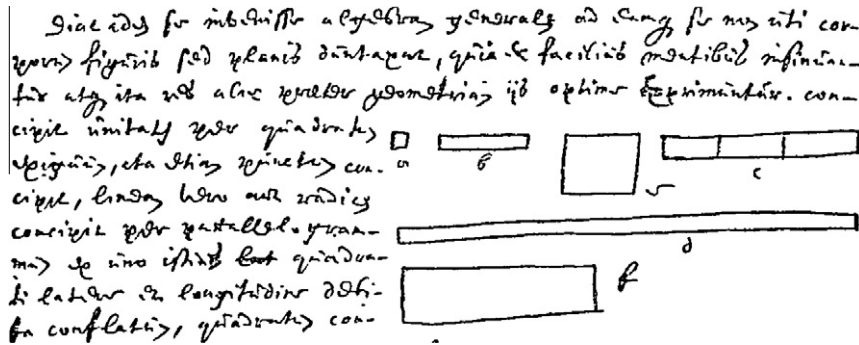 Dicit idem se invenisse algebram generalem ad eamq se non uti cor-
porum figuris sed planis duntaxat, quia eae facilius mentibus insinuan-
tur atq ita res aliae praeter geometriam ijs optime exprimuntur. con-
cipit unitatem per quadratum
exiguum, ita etiam punctum con- a b c
cipit, lineam vero aut radicem
concipit per parallelogram-
mum ex uno istius quadra- d
ti latere et longitudine debi- f
ta conflatum, quadratum con-